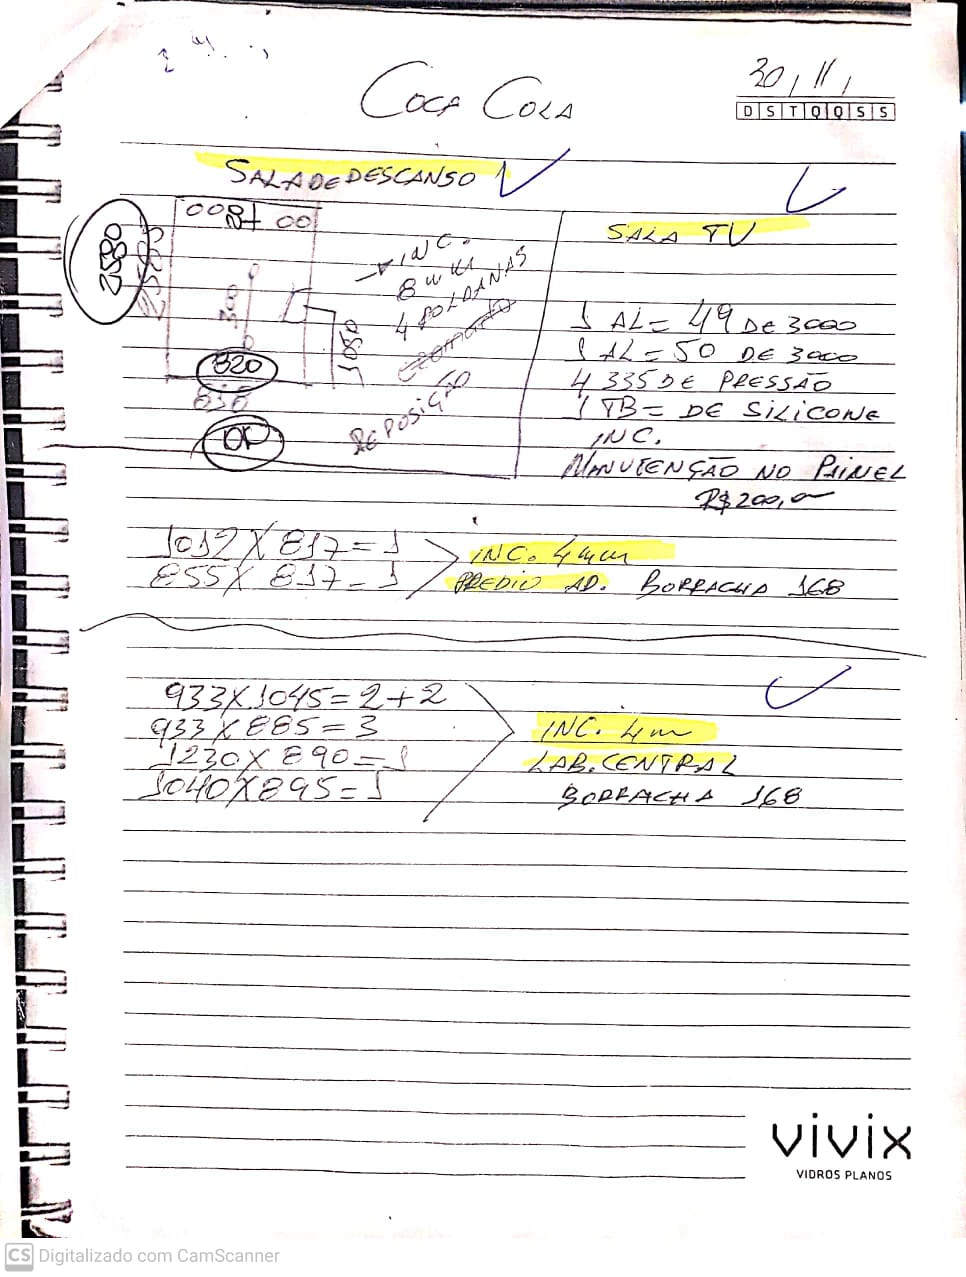 COCA COLA
30, 11,
D S T Q Q S S
SALA DE DESCANSO
SALA TV
2580
2585
300
820
1050
OP
INC.
8 mm
4 ROLDANAS
REPOSIÇÃO
1 AL = 49 DE 3000
1 AL = 50 DE 3000
4 335 DE PRESSÃO
1 TB = DE SILICONE
INC.
MANUTENÇÃO NO PAINEL
R$ 200,00
1017 X 817 = 1
855 X 817 = 1
INC. 4 mm
PREDIO AD. BORRACHA 168
933 X 1045 = 2 + 2
933 X 885 = 3
1230 X 890 = 1
1040 X 895 = 1
INC. 4 m
LAB. CENTRAL
BORRACHA 168
vivix
VIDROS PLANOS
CS Digitalizado com CamScanner